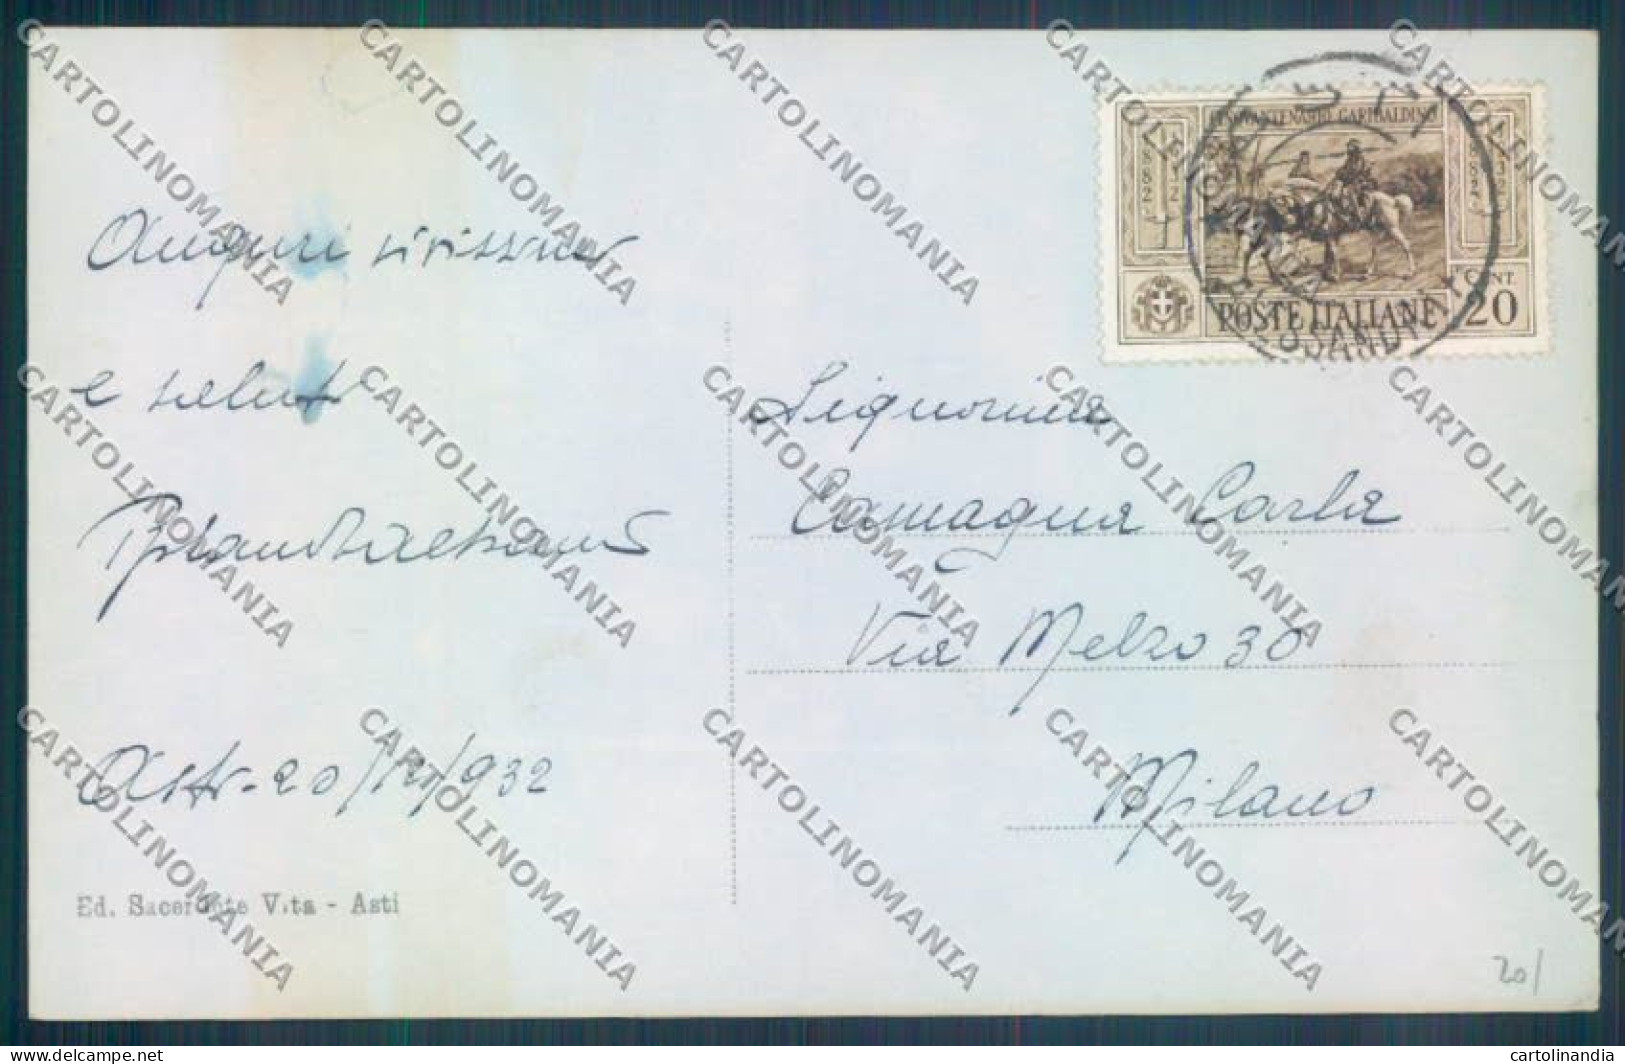 Auguri vivissimi
e saluti
Asti - 20/12/932
Ed. Sacerdote Vita - Asti
CINQVANTENARIO GARIBALDINO
1882
1932
CENT.
POSTE ITALIANE 20
Signorina
Camagna Carla
Via Melzo 30
Milano
20/
CARTOLINOMANIA
cartolinandia